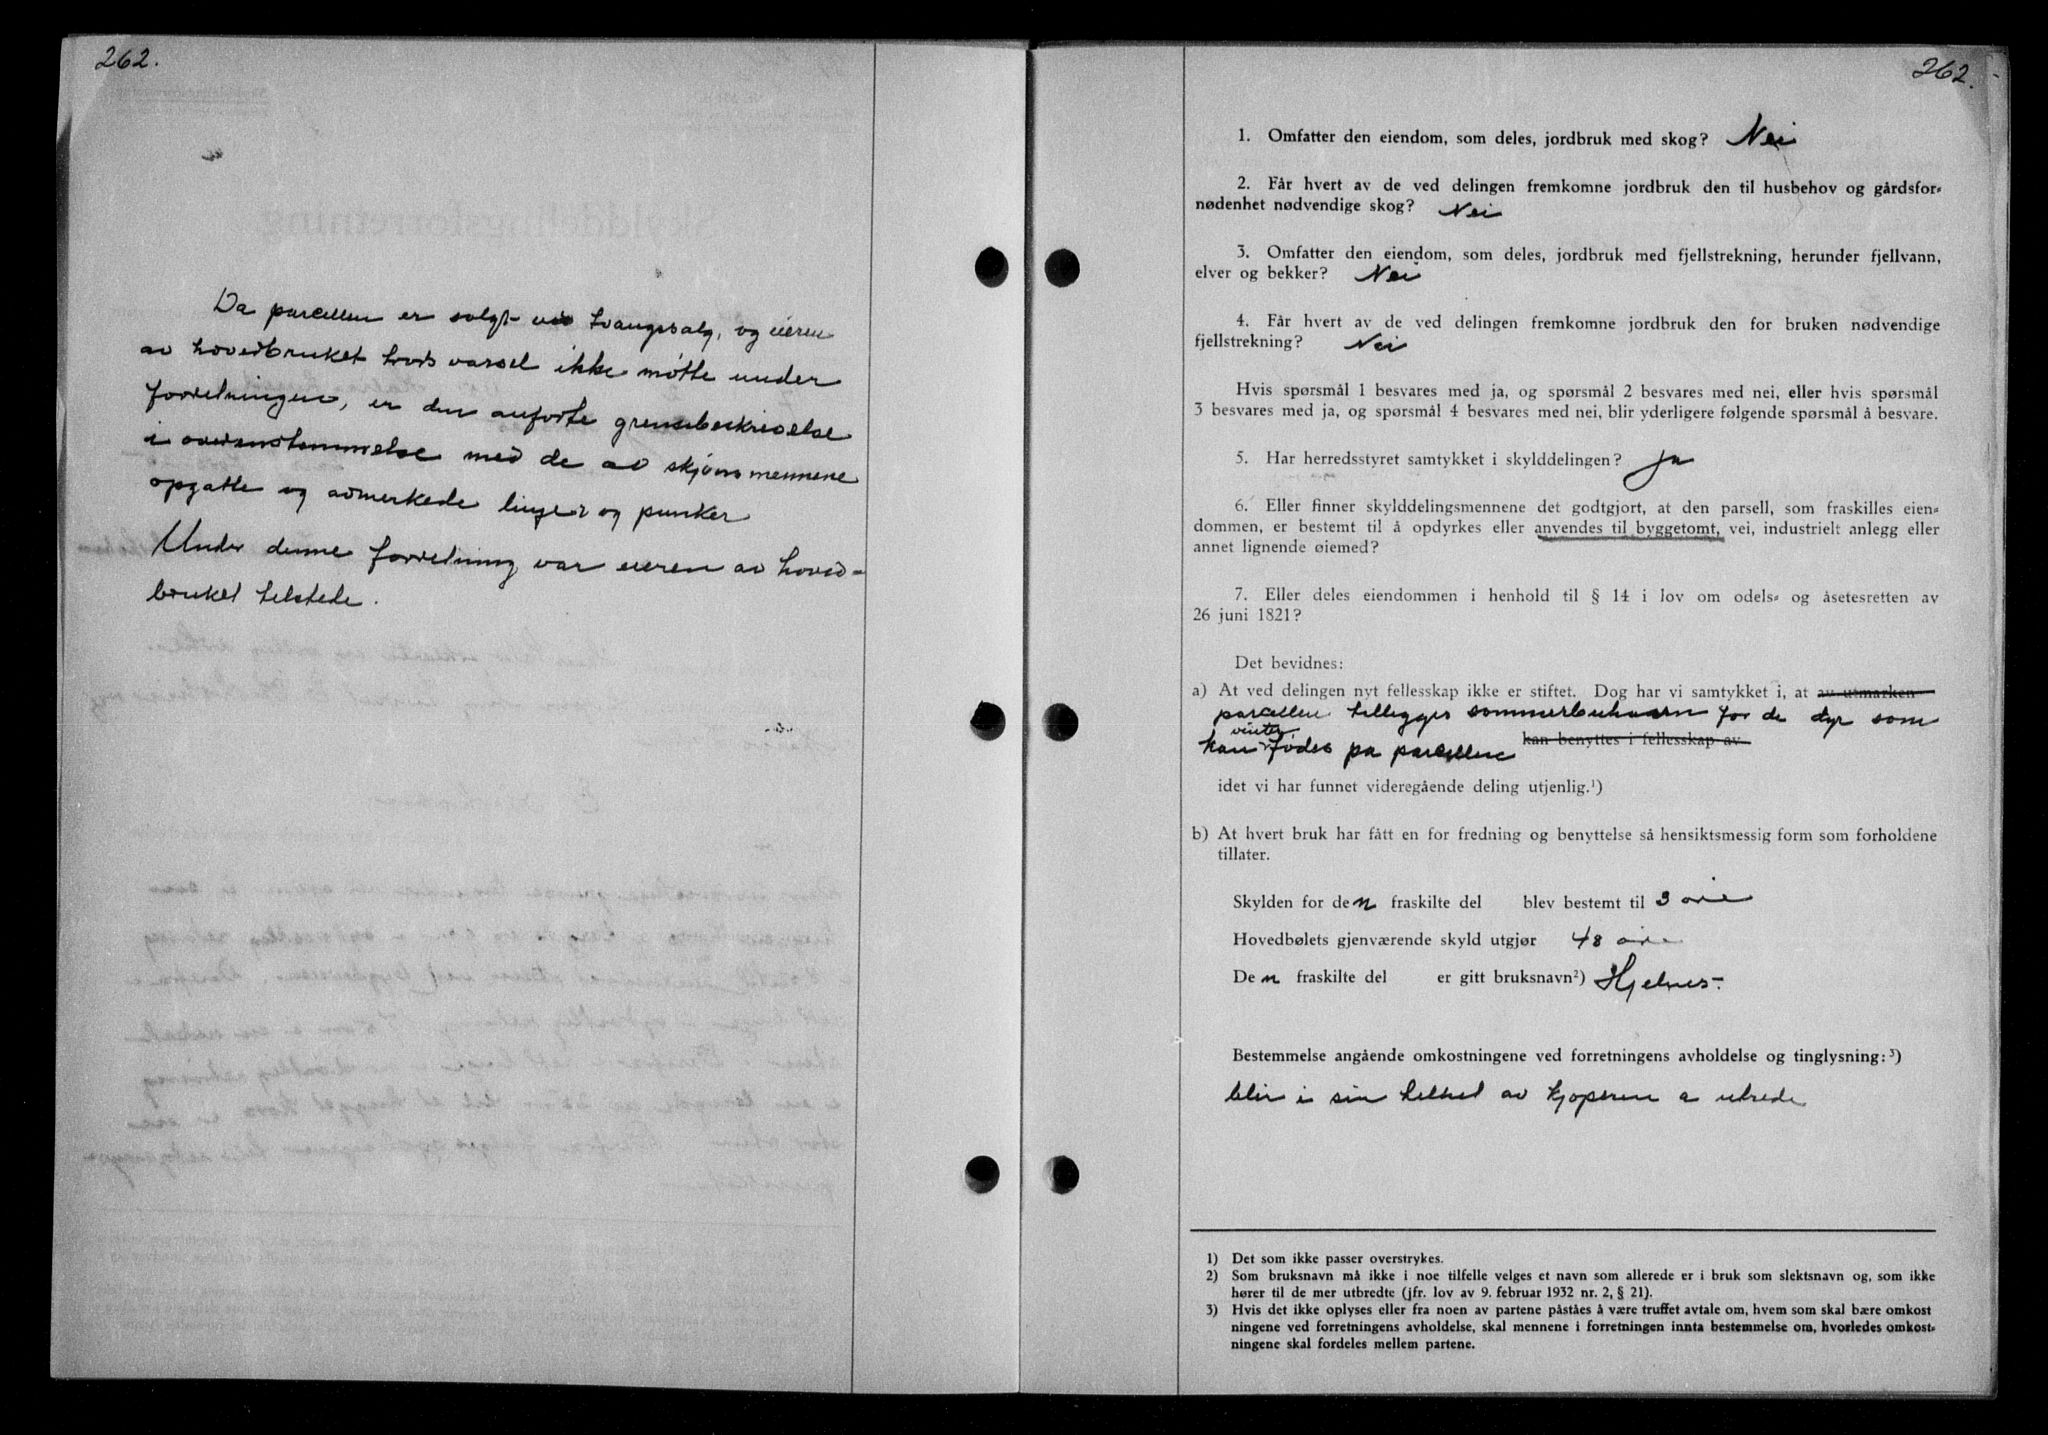 262.
Da parcellen er solgt ved tvangssalg, og eieren
av hovedbruket hvis varsel ikke møtte under
forretningen, er den anførte grensebeskrivelse
i overenstemmelse med de av skjønsmennene
opgåtte og avmerkede linjer og punker
Under denne forretning var eieren av hoved-
bruket tilstede.
262.
1. Omfatter den eiendom, som deles, jordbruk med skog? Nei
2. Får hvert av de ved delingen fremkomne jordbruk den til husbehov og gårdsfor-
nødenhet nødvendige skog? Nei
3. Omfatter den eiendom, som deles, jordbruk med fjellstrekning, herunder fjellvann,
elver og bekker? Nei
4. Får hvert av de ved delingen fremkomne jordbruk den for bruken nødvendige
fjellstrekning? Nei
Hvis spørsmål 1 besvares med ja, og spørsmål 2 besvares med nei, eller hvis spørsmål
3 besvares med ja, og spørsmål 4 besvares med nei, blir yderligere følgende spørsmål å besvare.
5. Har herredsstyret samtykket i skylddelingen? Ja
6. Eller finner skylddelingsmennene det godtgjort, at den parsell, som fraskilles eien-
dommen, er bestemt til å opdyrkes eller anvendes til byggetomt, vei, industrielt anlegg eller
annet lignende øiemed?
7. Eller deles eiendommen i henhold til § 14 i lov om odels- og åsetesretten av
26 juni 1821?
Det bevidnes:
a) At ved delingen nyt fellesskap ikke er stiftet. Dog har vi samtykket i, at av utmarken
parcellen tillegges sommerbuhavn for de dyr som
kan vinterfødes på parcellene kan benyttes i fellesskap av
idet vi har funnet videregående deling utjenlig.¹)
b) At hvert bruk har fått en for fredning og benyttelse så hensiktsmessig form som forholdene
tillater.
Skylden for den fraskilte del blev bestemt til 3 øre
Hovedbølets gjenværende skyld utgjør 48 øre
Den fraskilte del er gitt bruksnavn²) Hjelnes-
Bestemmelse angående omkostningene ved forretningens avholdelse og tinglysning:³)
blir i sin helhet av kjøperen å utrede
1) Det som ikke passer overstrykes.
2) Som bruksnavn må ikke i noe tilfelle velges et navn som allerede er i bruk som slektsnavn og, som ikke
hører til de mer utbredte (jfr. lov av 9. februar 1932 nr. 2, § 21).
3) Hvis det ikke oplyses eller fra noen av partene påståes å være truffet avtale om, hvem som skal bære omkost
ningene ved forretningens avholdelse, skal mennene i forretningen innta bestemmelse om, hvorledes omkost-
ningene skal fordeles mellem partene.